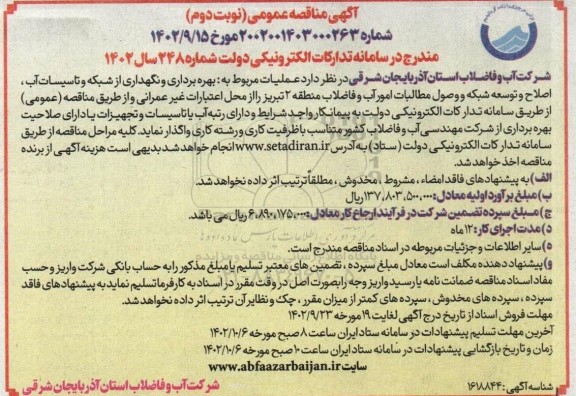 آگهی مناقصه عمومی (نوبت دوم)
شماره ۲۰۰۲۰۰۱۴۰۳۰۰۰۲۶۳ مورخ ۱۴۰۲/۹/۱۵
مندرج در سامانه تدارکات الکترونیکی دولت شماره ۲۴۸ سال ۱۴۰۲
شرکت آب و فاضلاب استان آذربایجان شرقی در نظر دارد عملیات مربوط به: بهره برداری و نگهداری از شبکه و تاسیسات آب،
اصلاح و توسعه شبکه و وصول مطالبات امور آب و فاضلاب منطقه ۲ تبریز را از محل اعتبارات غیر عمرانی و از طریق مناقصه (عمومی)
از طریق سامانه تدارکات الکترونیکی دولت به پیمانکار واجد شرایط و دارای رتبه آب یا تاسیسات و تجهیزات یا دارای صلاحیت
بهره برداری از شرکت مهندسی آب و فاضلاب کشور متناسب با ظرفیت کاری و رشته کاری واگذار نماید. کلیه مراحل مناقصه از طریق
سامانه تدارکات الکترونیکی دولت (ستاد) به آدرس www.setadiran.ir انجام خواهد شد بدیهی است هزینه آگهی از برنده
مناقصه اخذ خواهد شد.
الف) به پیشنهادهای فاقد امضاء، مشروط، مخدوش، مطلقاً ترتیب اثر داده نخواهد شد.
ب) مبلغ برآورد اولیه معادل: ۱۳۷,۸۰۳,۵۰۰,۰۰۰ ریال
ج) مبلغ سپرده تضمین شرکت در فرآیند ارجاع کار معادل: ۶,۸۹۰,۱۷۵,۰۰۰ ریال می باشد.
د) مدت اجرای کار: ۱۲ ماه
ه) سایر اطلاعات و جزئیات مربوطه در اسناد مناقصه مندرج است.
و) پیشنهاد دهنده مکلف است معادل مبلغ سپرده، تضمین های معتبر تسلیم یا مبلغ مذکور را به حساب بانکی شرکت واریز و حسب
مفاد اسناد مناقصه ضمانت نامه یا رسید واریز وجه را بصورت اصل در وقت مقرر در اسناد به کارفرما تسلیم نماید به پیشنهادهای فاقد
سپرده، سپرده های مخدوش، سپرده های کمتر از میزان مقرر، چک و نظایر آن ترتیب اثر داده نخواهد شد.
مهلت فروش اسناد از تاریخ درج آگهی لغایت ۱۹ مورخه ۱۴۰۲/۹/۲۳
آخرین مهلت تسلیم پیشنهادات در سامانه ستاد ایران ساعت ۸ صبح مورخه ۱۴۰۲/۱۰/۶
زمان و تاریخ بازگشایی پیشنهادات در سامانه ستاد ایران ساعت ۱۰ صبح مورخه ۱۴۰۲/۱۰/۶
سایت www.abfaazarbaijan.ir
شرکت آب و فاضلاب استان آذربایجان شرقی
شناسه آگهی: ۱۶۱۸۸۴۴